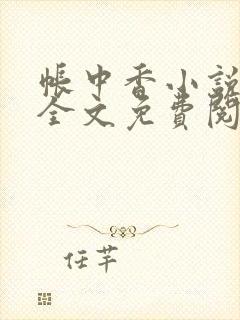 帳中香小說
全文免費閱
任芊